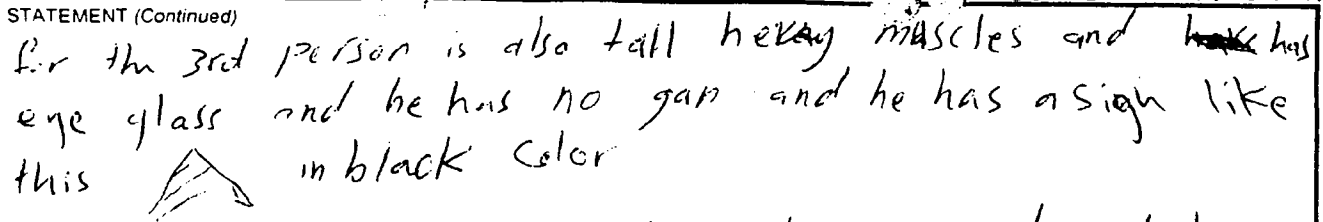 STATEMENT (Continued)
for the 3rd person is also tall hevey muscles and has
eye glass and he has no gan and he has a sign like
this in black Color